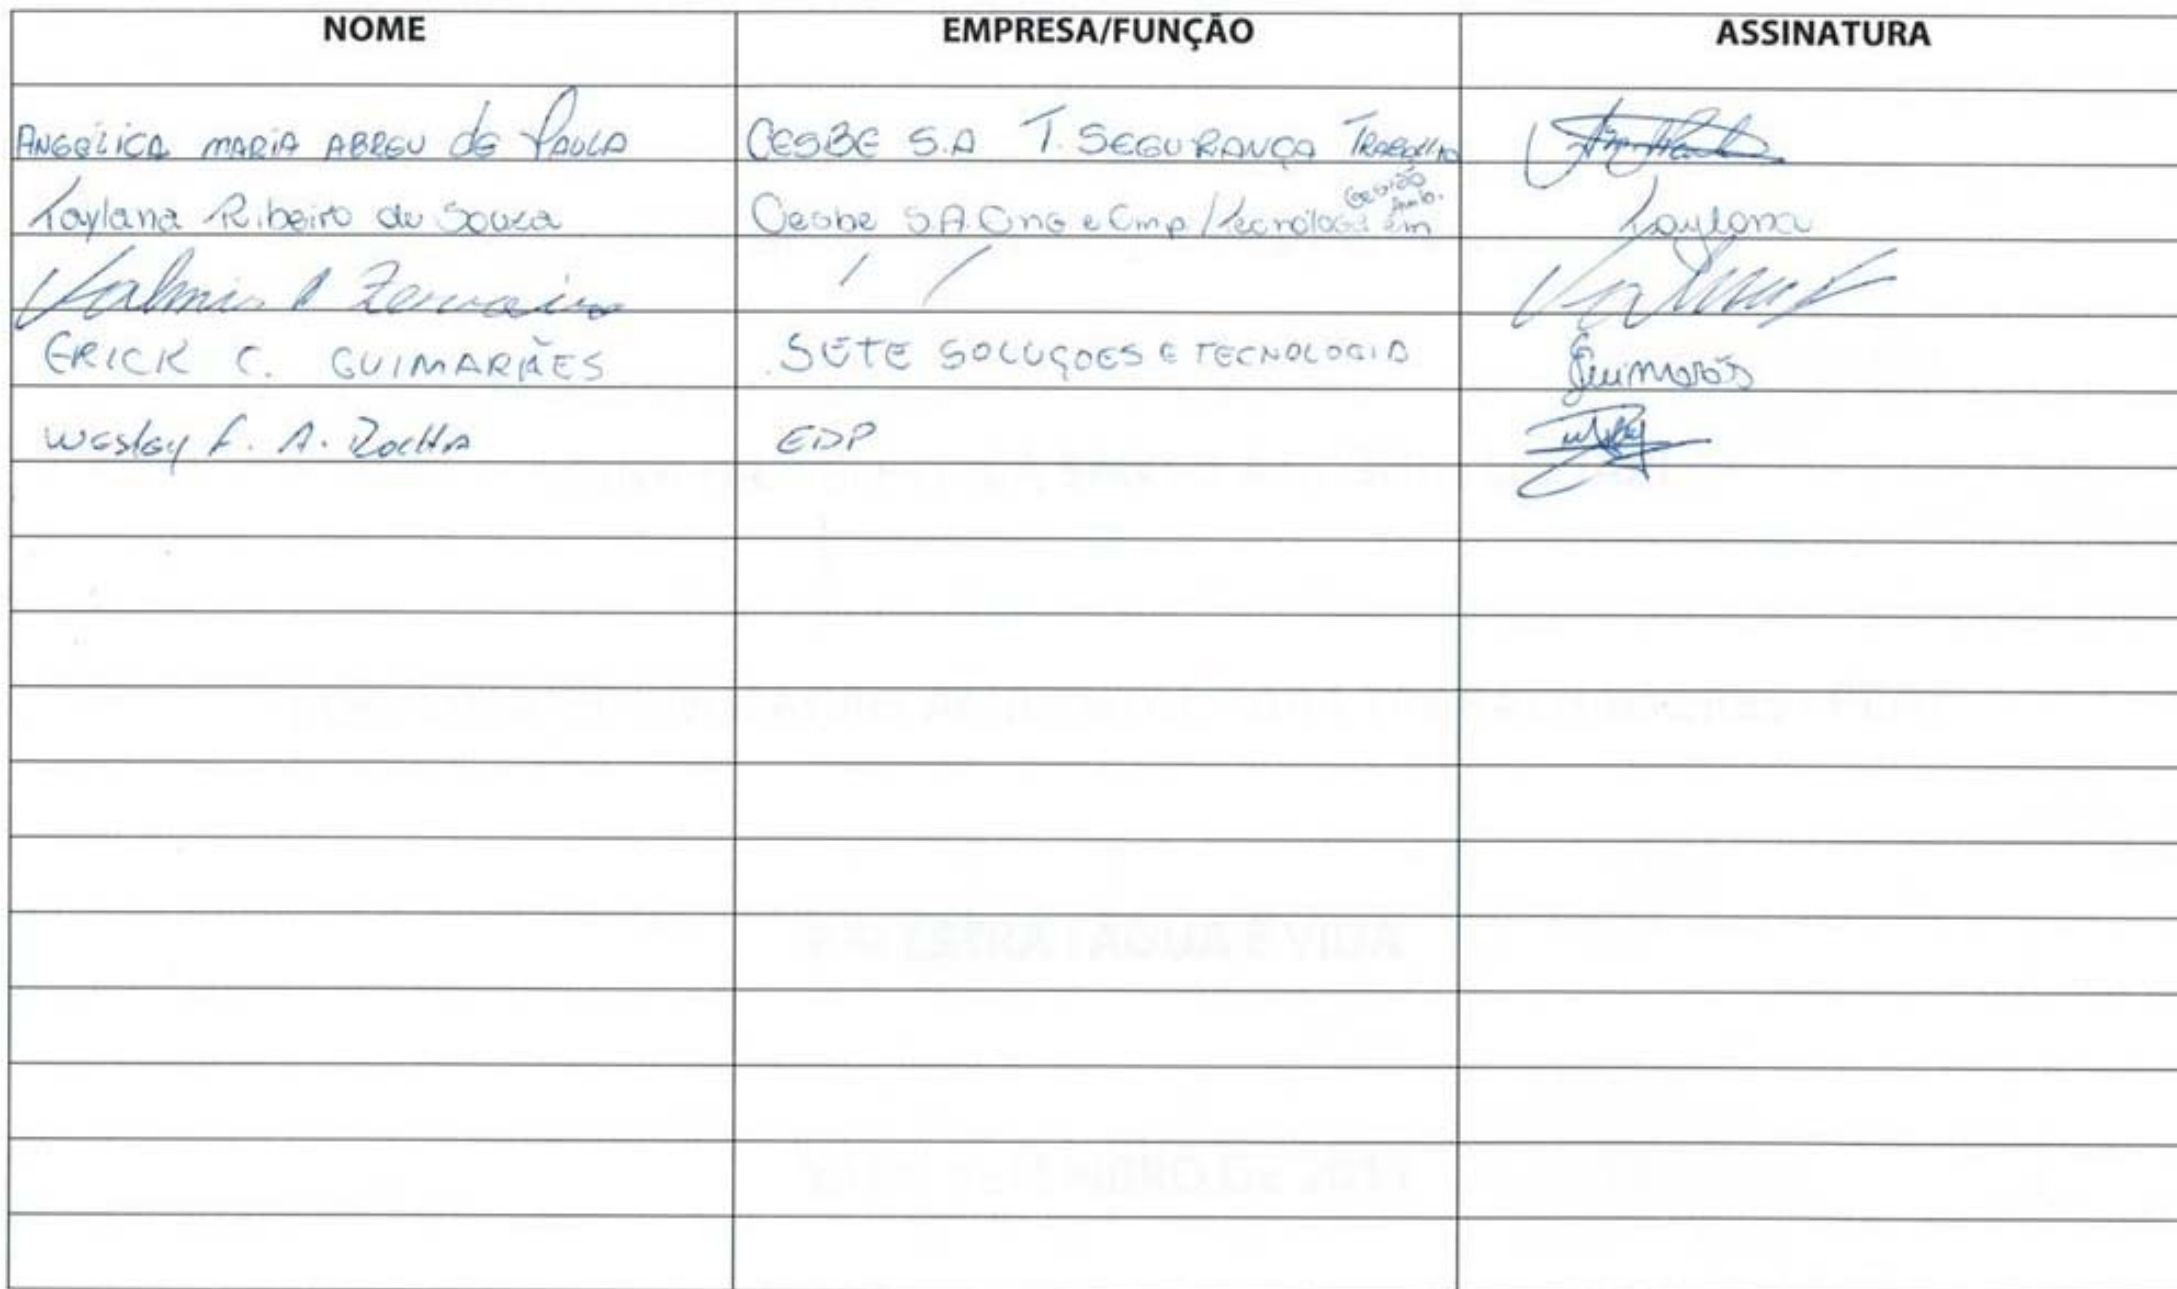 NOME EMPRESA/FUNÇÃO ASSINATURA
ANGÉLICA MARIA ABREU de PAULA CESBE S.A T. SEGURANÇA TRABALHO
Taylana Ribeiro de Souza Cesbe S.A. Eng e Emp / Tecnóloga em Gestão Amb. Taylana
Valmir / /
ERICK C. GUIMARÃES SETE SOLUÇOES E TECNOLOGIA Guimarães
Wesley F. A. Rocha EDP